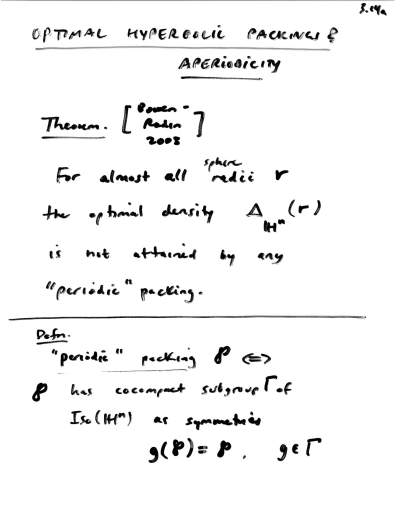 3.14a
OPTIMAL HYPERBOLIC PACKINGS &
APERIODICITY
Theorem. [Bowen - Radin 2003]
For almost all sphere radii r
the optimal density Δ_ℍⁿ (r)
is not attained by any
"periodic" packing.
Defn.
"periodic" packing 𝒫 ⟺
𝒫 has cocompact subgroup Γ of
Iso(ℍⁿ) as symmetries
g(𝒫) = 𝒫, g ∈ Γ